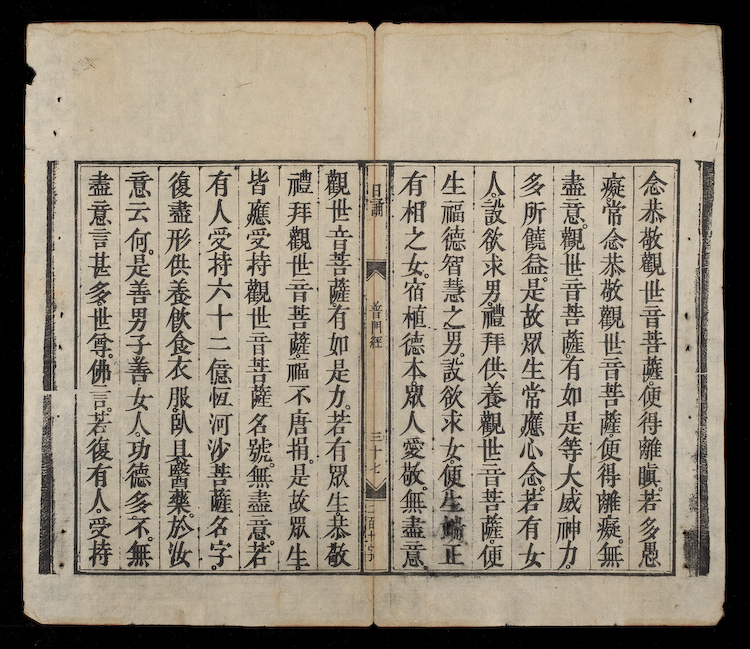 念恭敬觀世音菩薩。便得離瞋。若多愚
癡。常念恭敬觀世音菩薩。便得離癡。無
盡意。觀世音菩薩。有如是等大威神力。
多所饒益。是故眾生常應心念。若有女
人。設欲求男。禮拜供養觀世音菩薩。便
生福德智慧之男。設欲求女。便生端正
有相之女。宿植德本。眾人愛敬。無盡意。
日誦
普門經
三十七
二百十字
觀世音菩薩。有如是力。若有眾生。恭敬
禮拜觀世音菩薩。福不唐捐。是故眾生。
皆應受持觀世音菩薩名號。無盡意。若
有人受持六十二億恆河沙菩薩名字。
復盡形供養飲食衣服。臥具醫藥。於汝
意云何。是善男子善女人。功德多不。無
盡意言甚多。世尊。佛言。若復有人。受持